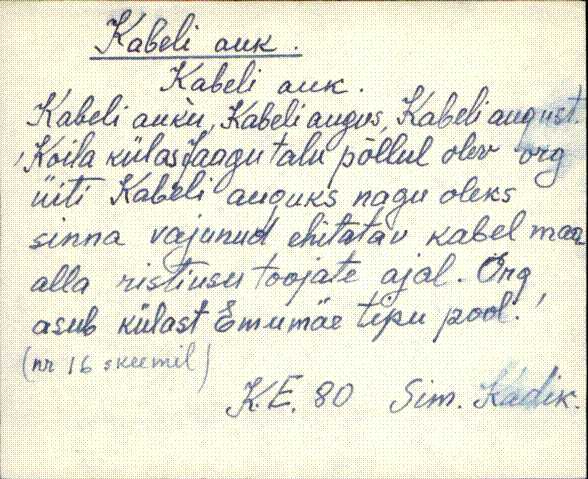 Kabeli auk.
Kabeli auk.
Kabeli auku, Kabeli augus, Kabeli august.
'Koila külas Jaagu talu põllul olev org
üiti Kabeli auguks nagu oleks
sinna vajunud ehitatav kabel maa
alla ristiusu toojate ajal. Org
asub külast Emumäe tipu pool.'
(nr 16 skeemil)
K.E. 80 Sim. Kadik.